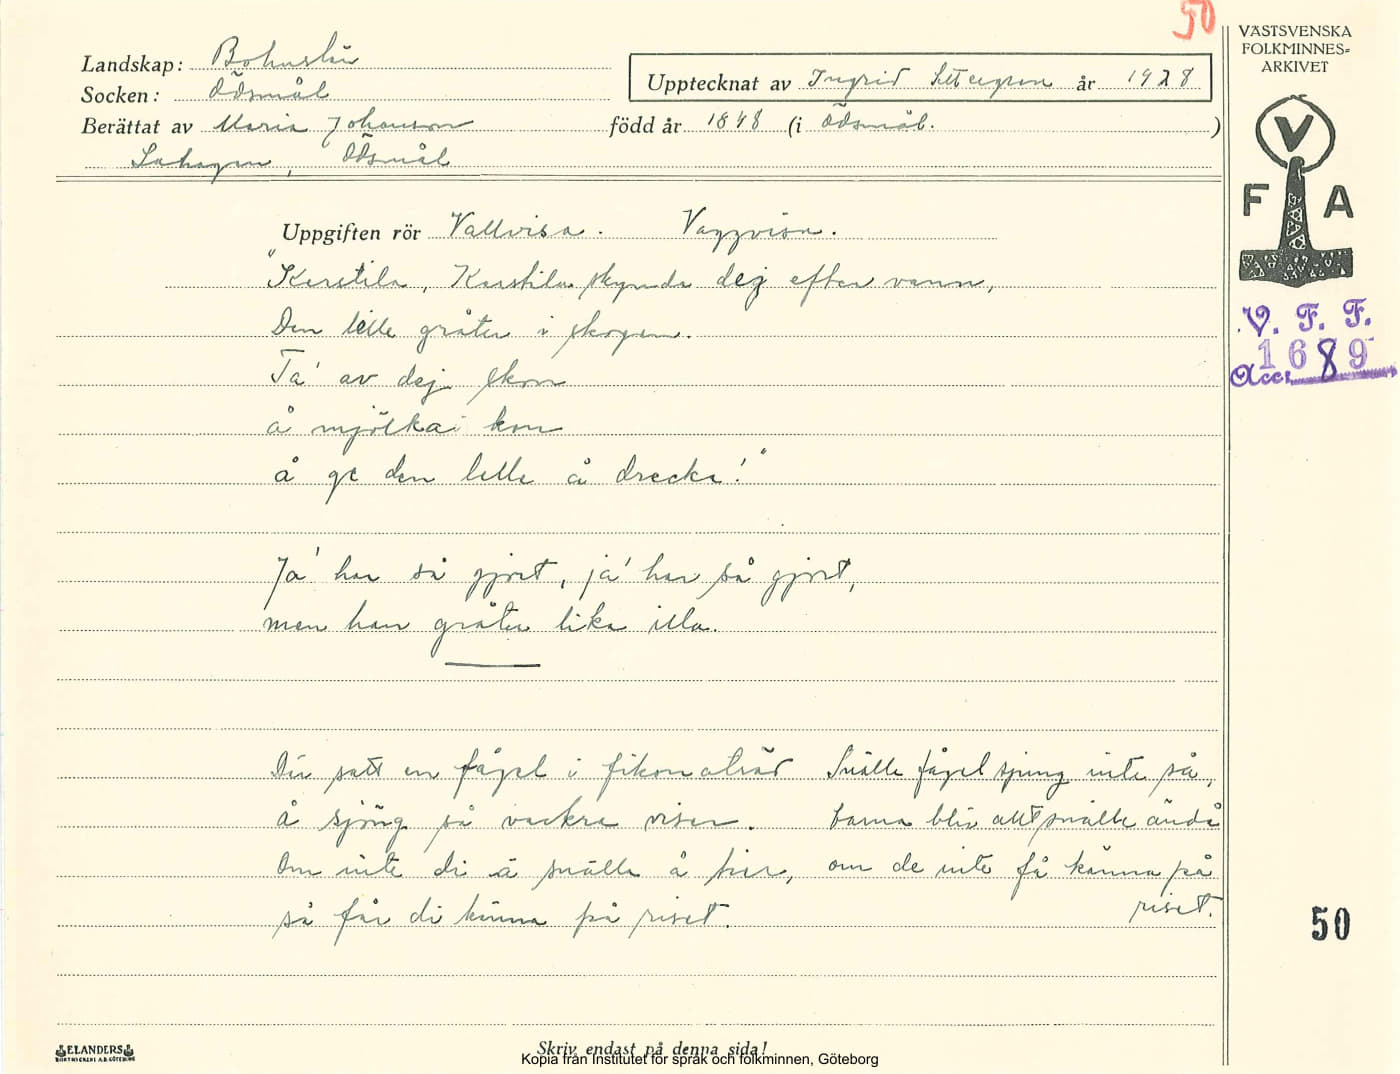 50
VÄSTSVENSKA
FOLKMINNES=
ARKIVET
Landskap: Bohuslän
Upptecknat av Ingrid år 1928
Socken: Ödsmål
Berättat av Maria Johansson född år 1848 (i Ödsmål.)
Ödsmål
V
F A
Uppgiften rör Vallvisa. Vaggvisa.
"Kerstila, Kerstila skynda dej efter vann,
Den lelle gråter i skogen.
Ta' av dej skon
å mjölka kon
å ge den lelle å drecka!"
Ja' har så gjort, ja' har så gjort,
men han gråter lika illa.
V. F. F.
Acc. 1689
Där satt en fågel i fikonaträd Snälle fågel sjung inte så,
å sjöng så vackra visor. barna blir allt snälle ändå
Om inte di ä snälla å der, om de inte få känna på
så får di känna på riset. riset.
50
ELANDERS
BOKTRYCKERI A.B. GÖTEBORG
Skriv endast på denna sida!
Kopia från Institutet för språk och folkminnen, Göteborg